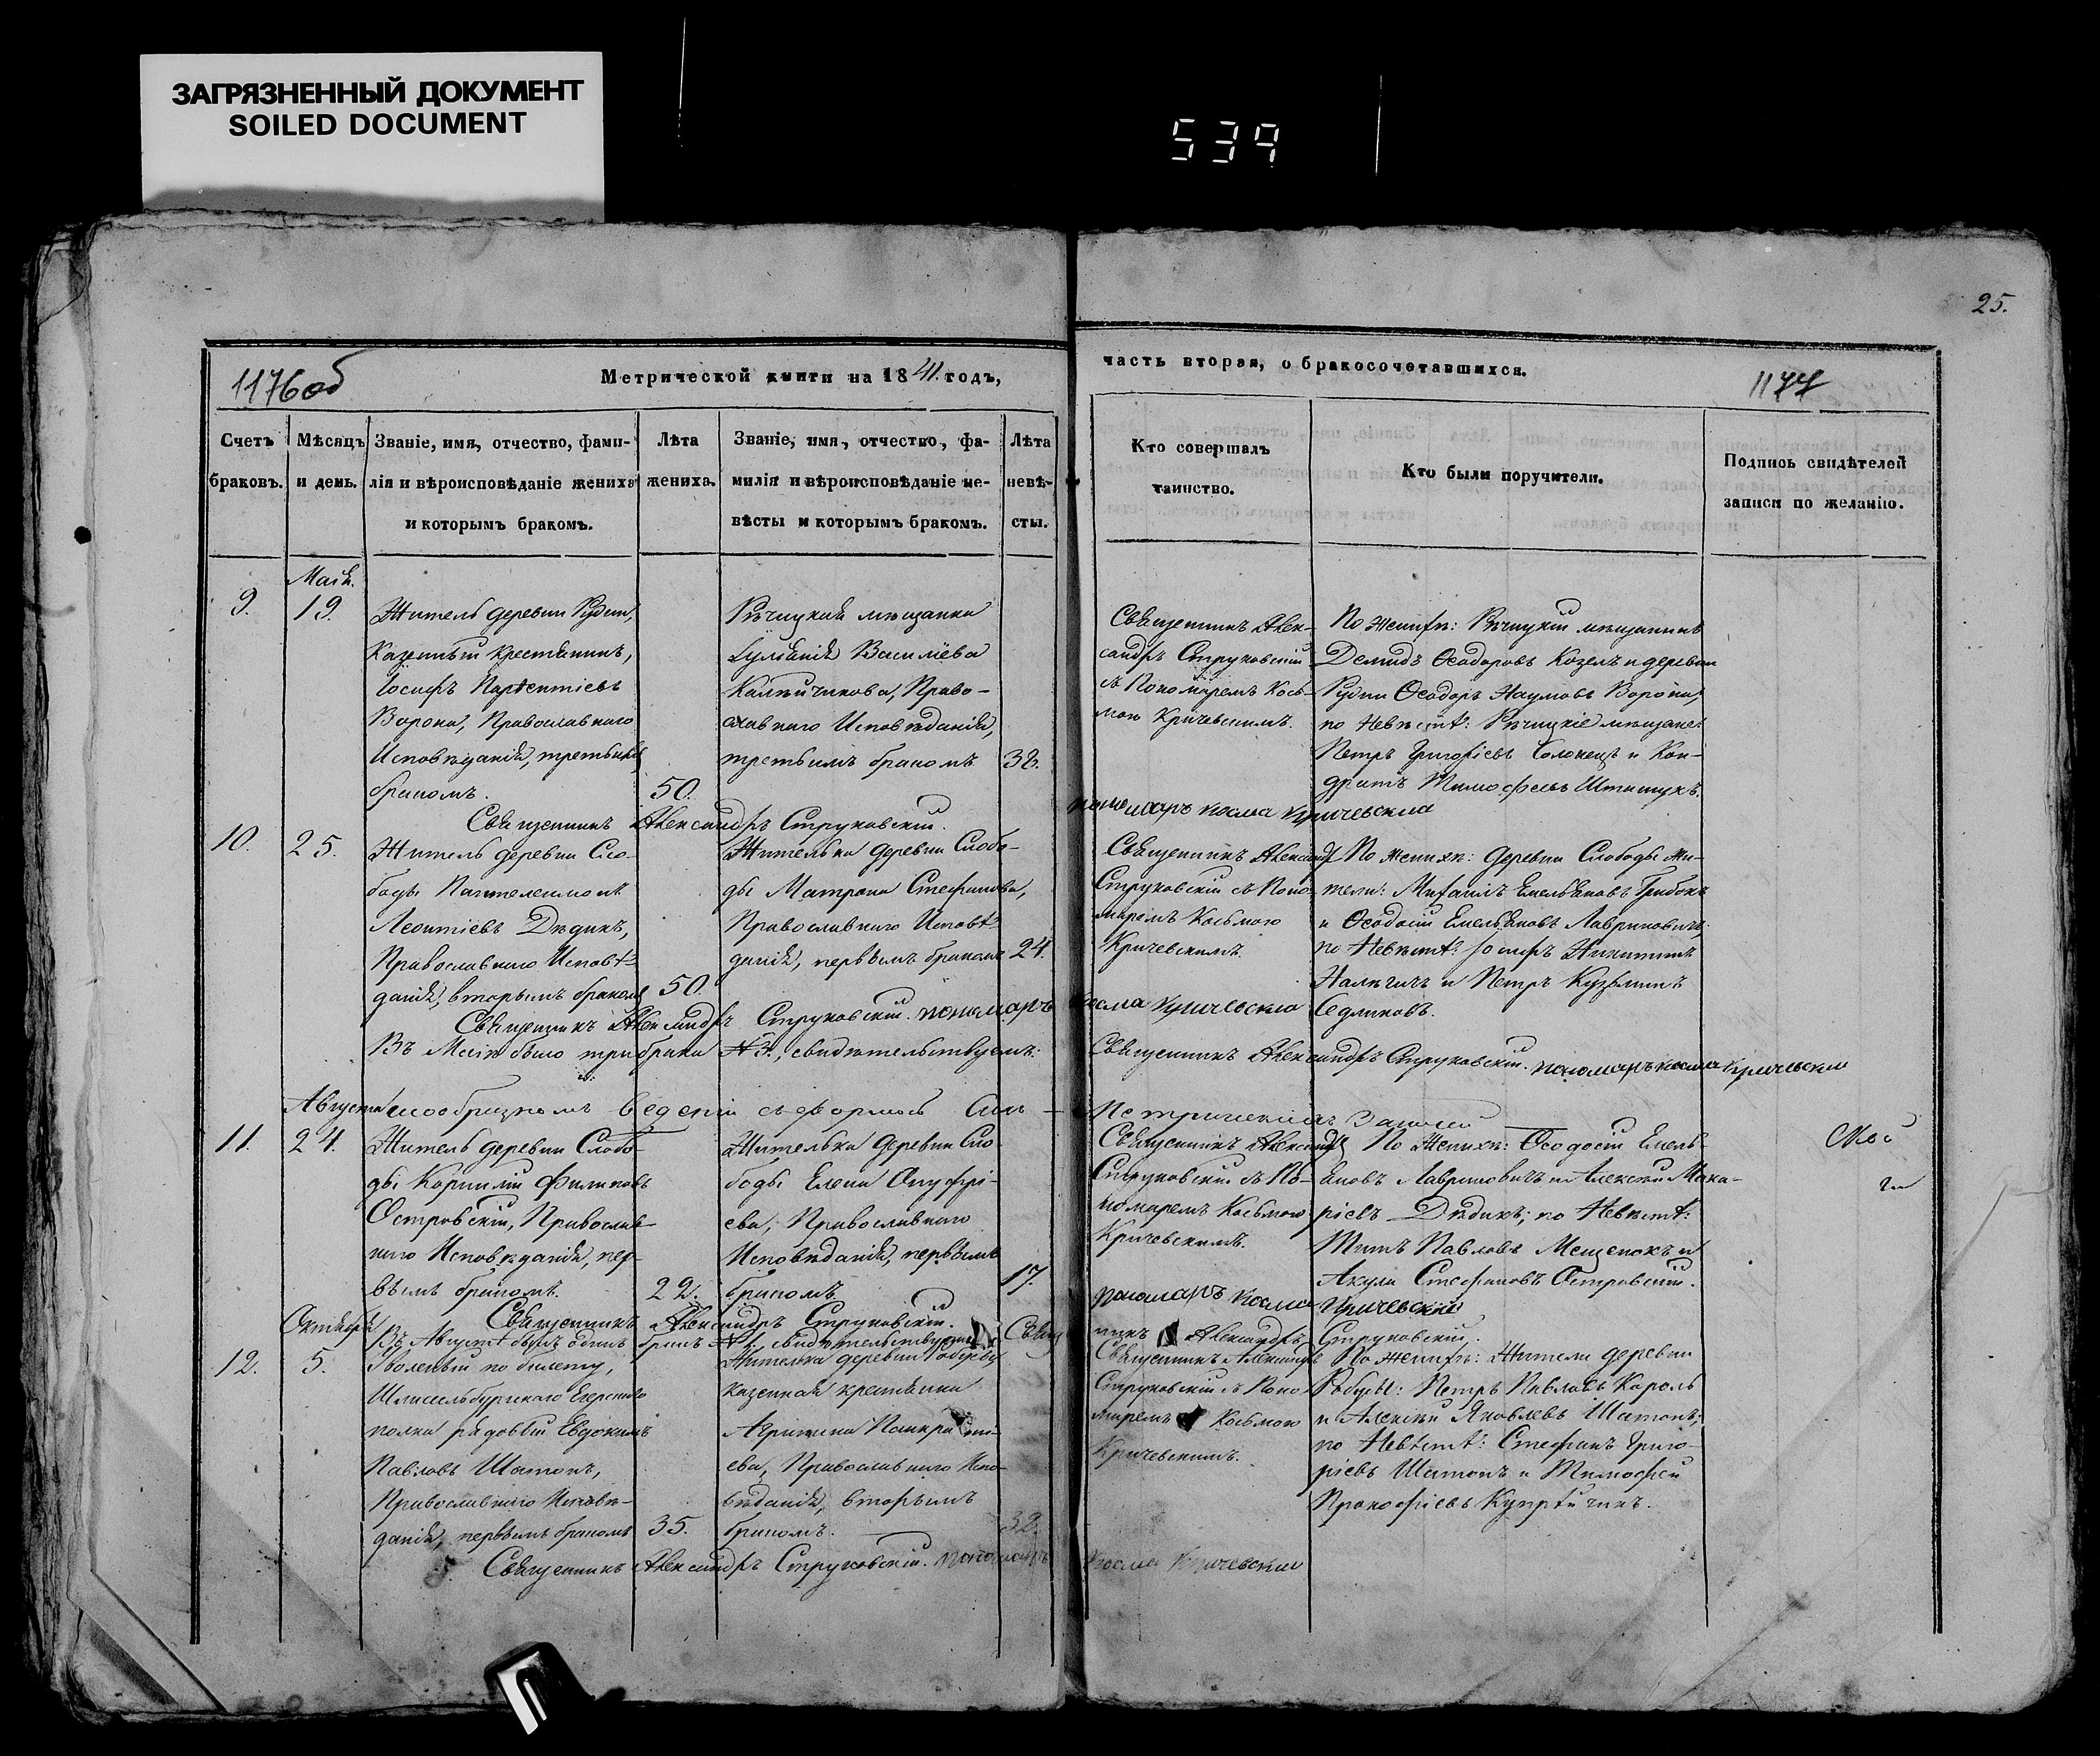 ЗАГРЯЗНЕННЫЙ ДОКУМЕНТ
SOILED DOCUMENT
539
25.
1176об
Метрической книги на 1841. годъ,
часть вторая, о бракосочетавшихся.
1177
Счетъ браковъ.
Мѣсяцъ и день.
Званіе, имя, отчество, фами-
лія и вѣроисповѣданіе жениха
и которымъ бракомъ.
Лѣта жениха.
Званіе, имя, отчество, фа-
милія и вѣроисповѣданіе не-
вѣсты и которымъ бракомъ.
Лѣта невѣ-
сты.
Кто совершалъ
таинство.
Кто были поручители.
Подпись свидѣтелей
записи по желанію.
Маія.
9.
19.
Житель деревни Рудни,
Казенный крестьянинъ,
Іосифъ Парѳентіевъ
Ворона, Православнаго
Исповѣданія, третьимъ
бракомъ.
50.
Рѣчицкая мѣщанка
Іуліанія Василіева
Калѣйчикова, Право-
славнаго Исповѣданія,
третьимъ бракомъ.
38.
Священникъ Алек-
сандръ Струковскій
съ Пономаремъ Кось-
мою Кричевскимъ.
По женихѣ: Рѣчицкій мѣщанинъ
Демидъ Ѳеодоровъ Козелъ и деревни
Рудни Ѳеодоръ Наумовъ Ворона,
по Невѣстѣ: Рѣчицкіе мѣщане:
Петръ Григоріевъ Солонецъ и Кон-
дратъ Тимофеевъ
Священникъ Александръ Струковскій.
пономаръ косма кричевский
10.
25.
Житель деревни Сло-
боды Пантелеимонъ
Леонтіевъ Дѣдикъ,
Православнаго Исповѣ-
данія, вторымъ бракомъ
50.
Жителька деревни Слобо-
ды Матрона Стефанова,
Православнаго Исповѣ-
данія, первымъ бракомъ
24.
Священникъ Александръ
Струковскій съ Поно-
маремъ Косьмою
Кричевскимъ.
По женихѣ: деревни Слободы жи-
тели: Михаилъ Емельяновъ Грибокъ
и Ѳеодосій Емельяновъ Лавриновичъ
по Невѣстѣ: Іосифъ Никитинъ
и Петръ Кузьминъ
Седликовъ.
Священникъ Александръ Струковскій. пономаръ косма кричевский
Въ Маіи было три брака № 3., свидѣтельствуемъ:
Священникъ Александръ Струковскій. пономаръ косма кричевский
Августа
веденіи съ формою
Метрическихъ Записей
11.
24.
Житель деревни Слобо-
ды Корнилій Филиповъ
Островскій, Православ-
наго Исповѣданія, пер-
вымъ бракомъ.
22.
Жителька деревни Сло-
боды Елена Онуфрі-
ева, Православнаго
Исповѣданія, первымъ
бракомъ.
17.
Священникъ Александръ
Струковскій съ По-
номаремъ Косьмою
Кричевскимъ.
По Женихѣ: Ѳеодосій Емель-
яновъ Лавриновичъ и Алексѣй Мака-
ріевъ Дѣдикъ; по Невѣстѣ:
Титъ Павловъ Мещенокъ и
Акула Стефановъ Островскій.
Священникъ Александръ Струковскій.
пономаръ косма кричевский
Октября
Въ Августѣ былъ одинъ бракъ № 1. свидѣтельствуемъ:
Александръ Струковскій.
12.
5.
Уволенный по билету,
Шлиссельбургскаго Егерскаго
полка рядовый Евдокимъ
Павловъ Шатонъ,
Православнаго Исповѣ-
данія, первымъ бракомъ
35.
Жителька деревни Робусы
казенная крестьянка
Агрипина Панкрати-
ева, Православнаго Испо-
вѣданія, вторымъ
бракомъ.
32.
Священникъ Александръ
Струковскій съ Поно-
маремъ Косьмою
Кричевскимъ.
По Женихѣ: Жители деревни
Робусы: Петръ Павловъ Кароль
и Алексѣй Яковлевъ Шатонъ;
по Невѣстѣ: Стефанъ Григо-
ріевъ Шатонъ и Тимофей
Прокофіевъ Купрѣйчикъ.
Священникъ Александръ Струковскій. пономаръ косма кричевский